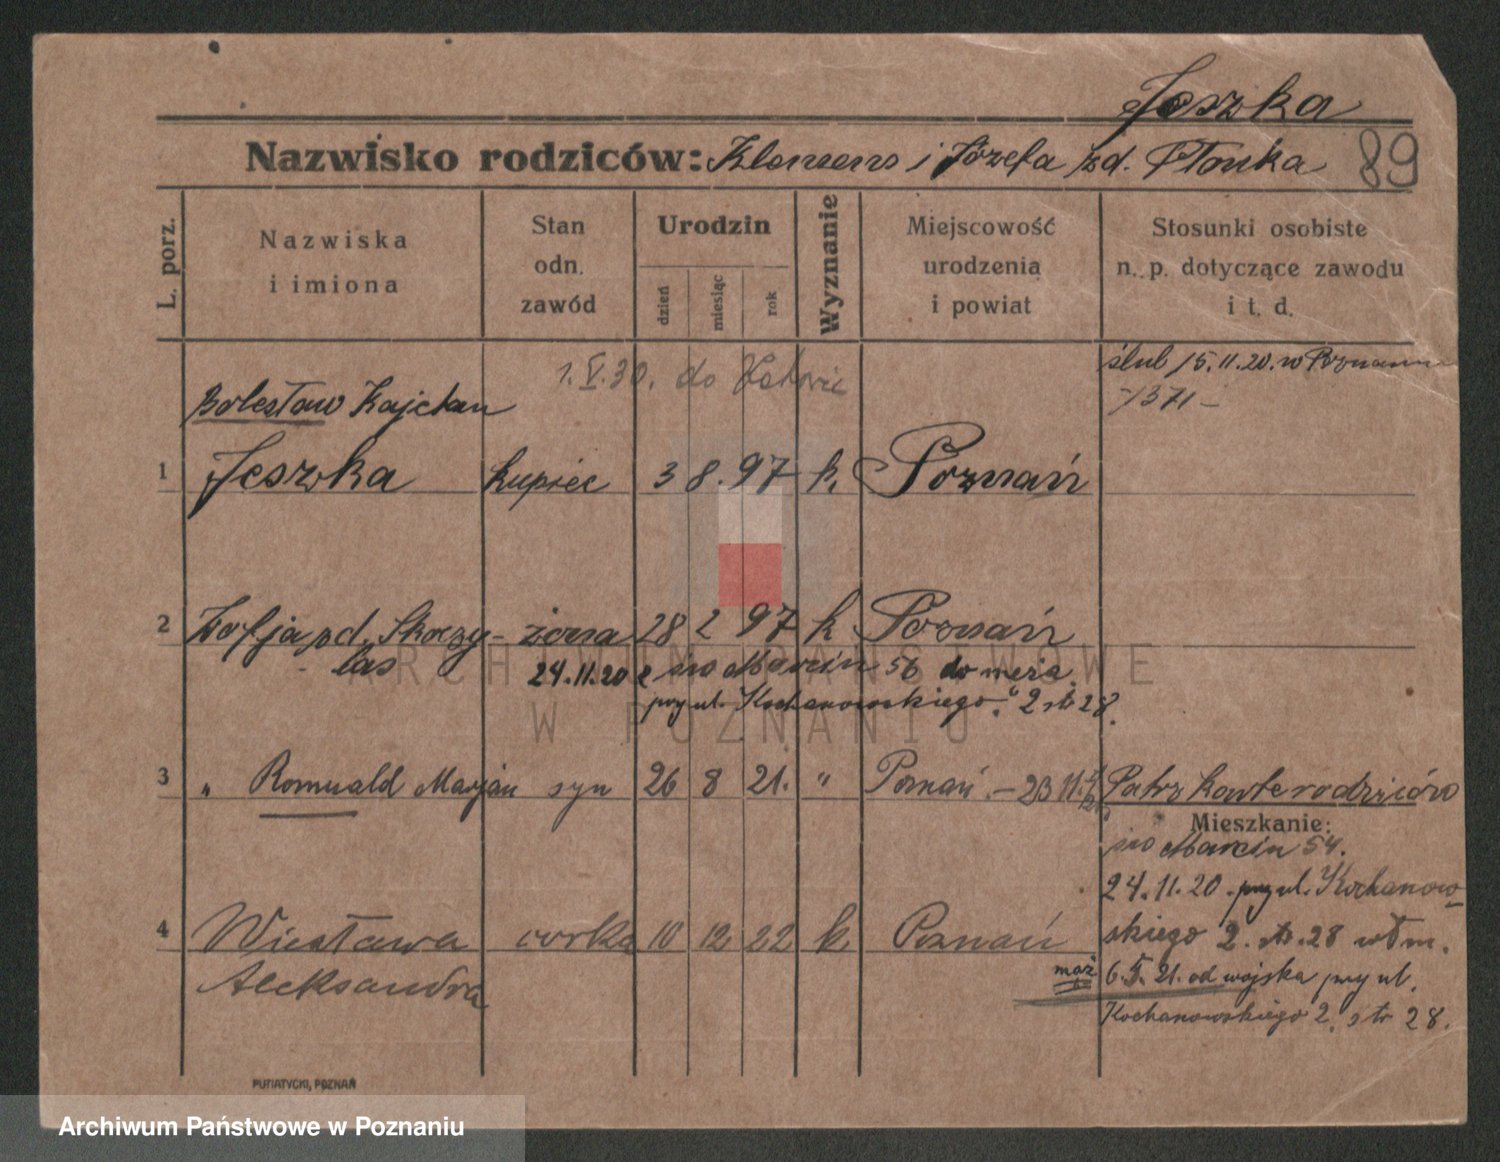 Jeszka
Nazwisko rodziców: Klemens i Józefa zd. Płonka
89
L. porz.
Nazwiska i imiona
Stan odn. zawód
Urodzin
dzień miesiąc rok
Wyznanie
Miejscowość urodzenia i powiat
Stosunki osobiste n. p. dotyczące zawodu i t. d.
1. V. 30. do Katowic
ślub 15.11.20. w Poznaniu
1371 -
Bolesław Kajetan
1 Jeszka kupiec 3 8. 97 k. Poznań
2 Zofja zd. Skoczy- żona 28 2 97 k Poznań
las 24.11.20 z św Marcin 56 do męża
przy ul. Kochanowskiego 2 str 28.
3 " Romuald Marjan syn 26 8 21. " Poznań. - 23 11. Patrz kartę rodziców
Mieszkanie:
św Marcin 54.
24.11.20 przy ul. Kochanow-
4 Wiesława córka 10 12 22 k Poznań
skiego 2. str. 28 wł m.
Aleksandra
mąż 6. 5. 21. od wojska przy ul.
Kochanowskiego 2, str 28.
PUTIATYCKI, POZNAŃ
ARCHIWUM PAŃSTWOWE
W POZNANIU
Archiwum Państwowe w Poznaniu